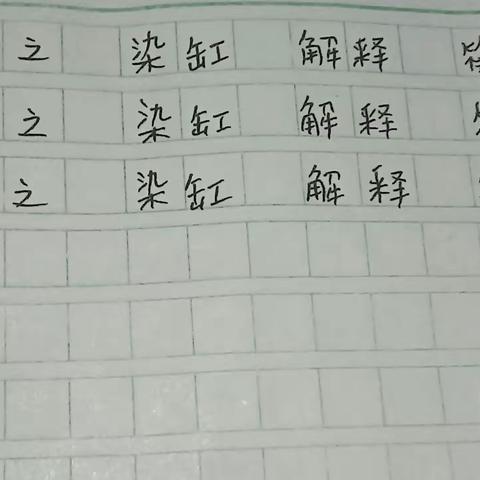 之 染缸 解释
之 染缸 解释
之 染缸 解释